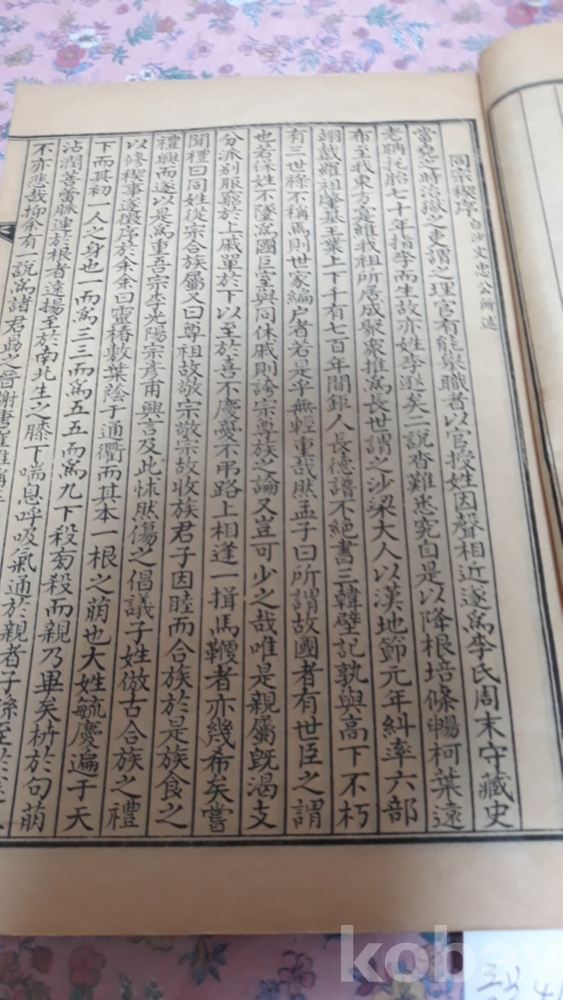 同宗稧序 白沙文忠公所述
當皐之時治獄之吏謂之理官有能擧職者以官授姓因聲相近遂爲李氏周末守藏史
老聃托胎七十年指李而生故亦姓李遂矣二說杳難悉究自是以降根培條暢柯葉遠
布至我東方寔維我祖所居成聚衆推爲長世謂之沙梁大人以漢地節元年糾率六部
翊戴羅祖肇基王業上下千有七百年間鉅人長德譜不絶書三韓壁記孰與高下不朽
有三世祿不稱焉則世家編户者若是乎無輕重哉然孟子曰所謂故國者有世臣之謂
也若保姓不墜爲國巨室與同休戚則誇宗尊族之論又豈可少之哉唯是親屬旣渴支
分派别服窮於上戚單於下以至於喜不慶憂不吊路上相逢一揖馬鞭者亦幾希矣嘗
聞禮曰同姓從宗合族屬又曰尊祖故敬宗敬宗故收族君子因睦而合族於是族食之
禮興而遂以是爲重吾宗李光陽宗彦甫興言及此怵然傷之倡議子姓倣古合族之禮
以修稧事遂徵序於余余曰靈椿敷葉蔭于通衢而其本一根之萌也大姓毓慶遍于天
下而其初一人之身也一而爲三三而爲五五而爲九下殺旁殺而親乃畢矣枿於句萌
沾潤菩蕾脉連於根者遠揚至於南北生之膝下喘息呼吸氣通於親者子孫至於
不亦悲哉抑余有一說爲諸君爲之晉謝唐崔
kobay